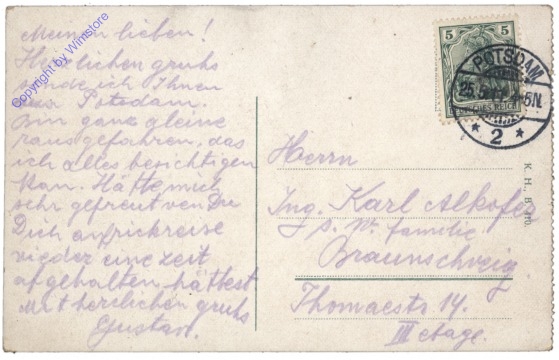 Meinen lieben!
Herzlichen gruhs
sende ich Ihnen
aus Potsdam.
Bin ganz aleine
raus gefahren, das
ich alles besichtigen
kan. Hätte mich
sehr gefreut ven Du
Dich auf rickreise
vieder eine zeit
afgehalten hättest
Mit herzlichen gruhs
Gustav.
Copyright by Winstore
5 5
DEUTSCHES REICH
POTSDAM
25.5. 4-5N.
* 2 *
Herrn
Ing. Karl Alkofer
s. W. familie
Braunschveig
Thomaestr 14.
III etage.
K. H., B.